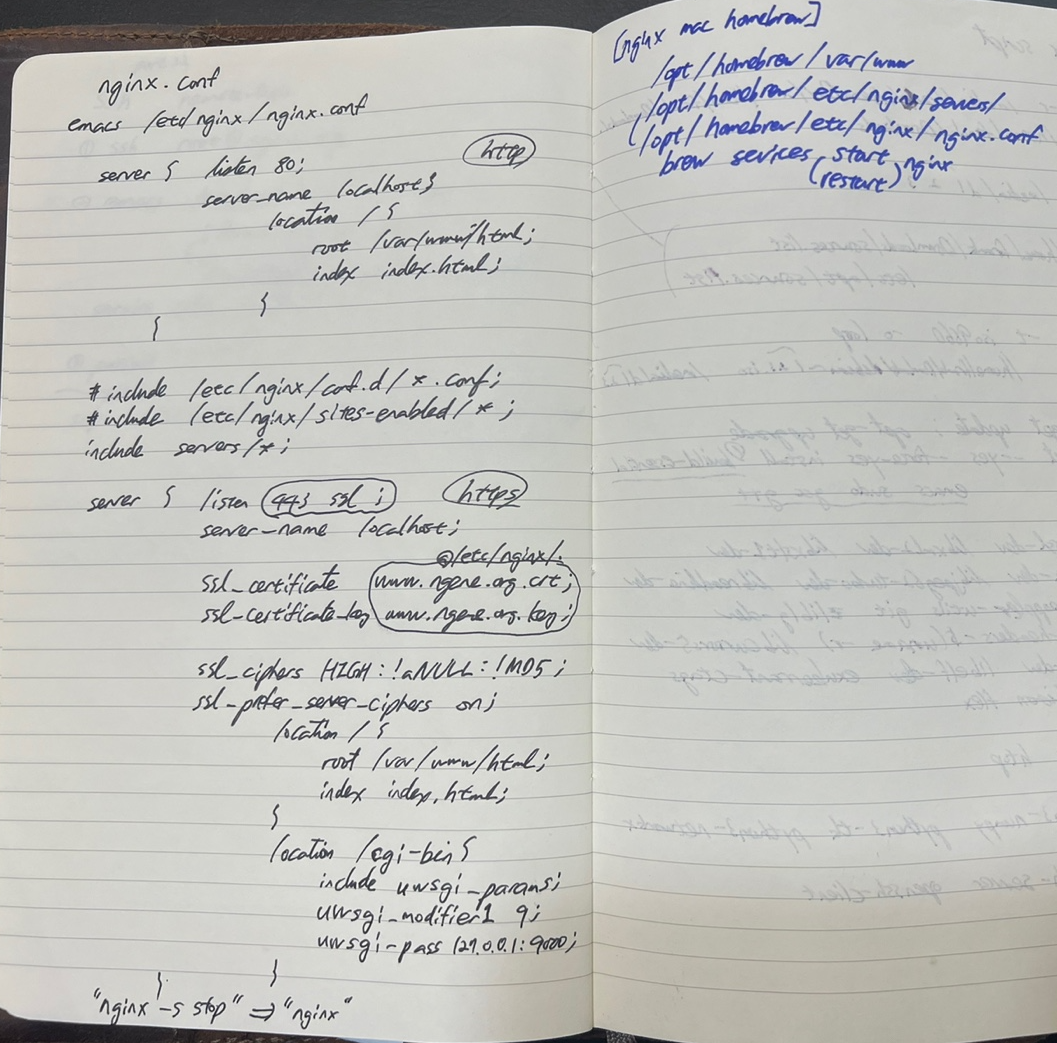 nginx.conf
emacs /etc/nginx/nginx.conf
http
server { listen 80;
server_name localhost;
location / {
root /var/www/html;
index index.html;
}
}
# include /etc/nginx/conf.d/*.conf;
# include /etc/nginx/sites-enabled/*;
include servers/*;
https
server { listen 443 ssl;
server-name localhost;
@/etc/nginx/.
ssl_certificate www.ngene.org.crt;
ssl-certificate_key www.ngene.org.key;
ssl_ciphers HIGH:!aNULL:!MD5;
ssl_prefer_server_ciphers on;
location / {
root /var/www/html;
index index.html;
}
location /cgi-bin {
include uwsgi_params;
uwsgi_modifier1 9;
uwsgi-pass 127.0.0.1:9000;
}
}
"nginx -s stop" => "nginx"
[nginx mac homebrew]
/opt/homebrew/var/www
/opt/homebrew/etc/nginx/servers/
/opt/homebrew/etc/nginx/nginx.conf
brew sevices start nginx
(restart)